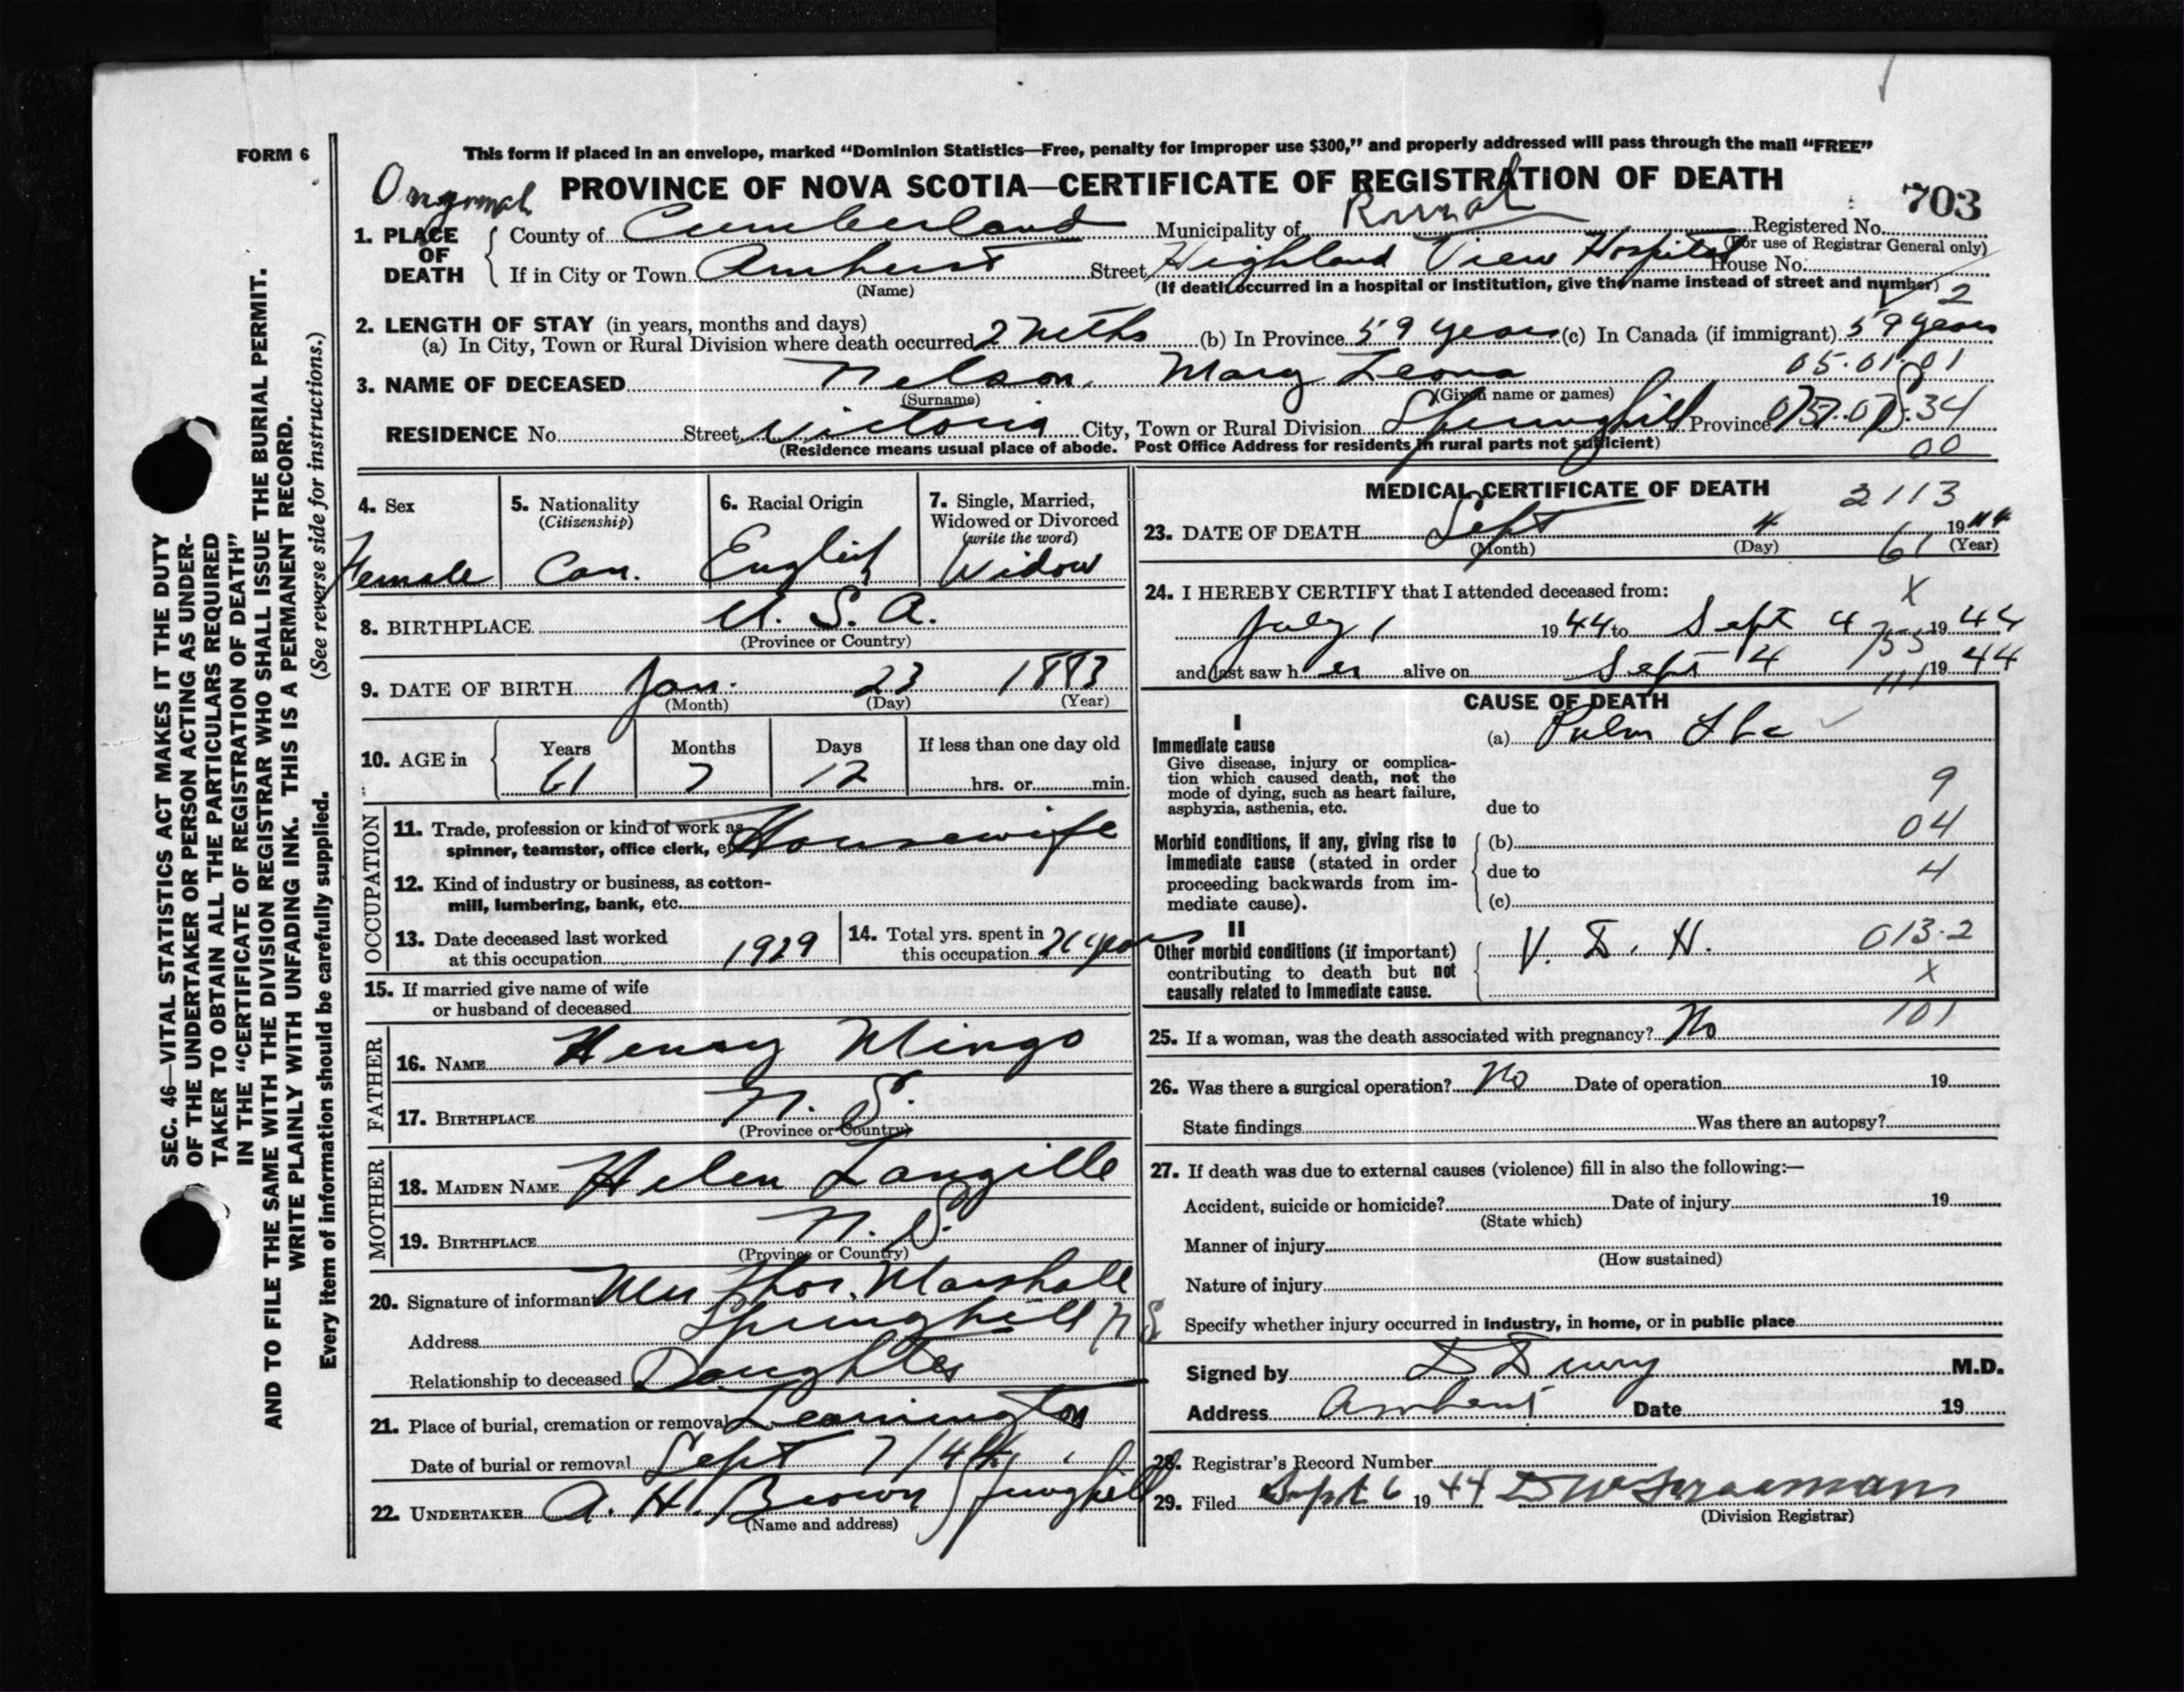 FORM 6
This form if placed in an envelope, marked “Dominion Statistics—Free, penalty for improper use $300,” and properly addressed will pass through the mail “FREE”
Original PROVINCE OF NOVA SCOTIA—CERTIFICATE OF REGISTRATION OF DEATH
703
1. PLACE OF DEATH { County of Cumberland Municipality of Rural Registered No.
(For use of Registrar General only)
If in City or Town Amherst Street Highland View Hospital House No.
(Name) (If death occurred in a hospital or institution, give the name instead of street and number)
2
2. LENGTH OF STAY (in years, months and days)
(a) In City, Town or Rural Division where death occurred 2 Mths (b) In Province 59 years (c) In Canada (if immigrant) 59 years
05.01.01
3. NAME OF DECEASED Nelson, Mary Leona
(Surname) (Given name or names)
RESIDENCE No. Street Victoria City, Town or Rural Division Springhill Province
(Residence means usual place of abode. Post Office Address for residents in rural parts not sufficient)
00
4. Sex Female
5. Nationality (Citizenship) Can.
6. Racial Origin English
7. Single, Married, Widowed or Divorced (write the word) Widow
8. BIRTHPLACE U. S. A.
(Province or Country)
9. DATE OF BIRTH Jan. 23 1883
(Month) (Day) (Year)
10. AGE in { Years 61 Months 7 Days 12 If less than one day old
hrs. or min.
OCCUPATION
11. Trade, profession or kind of work as spinner, teamster, office clerk, etc. Housewife
12. Kind of industry or business, as cotton-mill, lumbering, bank, etc.
13. Date deceased last worked at this occupation 1929
14. Total yrs. spent in this occupation years
15. If married give name of wife or husband of deceased
FATHER
16. NAME Henry Mingo
17. BIRTHPLACE N. S.
(Province or Country)
MOTHER
18. MAIDEN NAME Helen Langille
19. BIRTHPLACE N. S.
(Province or Country)
20. Signature of informant Mrs Thos. Marshall
Address Springhill N S
Relationship to deceased Daughter
21. Place of burial, cremation or removal Leamington
Date of burial or removal Sept 7/44
22. UNDERTAKER A. H. Brown Springhill
(Name and address)
MEDICAL CERTIFICATE OF DEATH
2113
23. DATE OF DEATH Sept 4 1944
(Month) (Day) (Year)
61
24. I HEREBY CERTIFY that I attended deceased from:
X
July 1 1944 to Sept 4 1944
and last saw her alive on Sept 4 1944
CAUSE OF DEATH
I
Immediate cause
Give disease, injury or complication which caused death, not the mode of dying, such as heart failure, asphyxia, asthenia, etc.
(a) Pulm Tbc
due to
9
04
4
Morbid conditions, if any, giving rise to immediate cause (stated in order proceeding backwards from immediate cause).
(b)
due to
(c)
II
Other morbid conditions (if important) contributing to death but not causally related to immediate cause.
V. D. H. 013.2
X
101
25. If a woman, was the death associated with pregnancy? No
26. Was there a surgical operation? No Date of operation 19
State findings Was there an autopsy?
27. If death was due to external causes (violence) fill in also the following:—
Accident, suicide or homicide? Date of injury 19
(State which)
Manner of injury
(How sustained)
Nature of injury
Specify whether injury occurred in industry, in home, or in public place
Signed by M.D.
Address Amherst Date 19
28. Registrar's Record Number
29. Filed Sept 6 1944
(Division Registrar)
SEC. 46—VITAL STATISTICS ACT MAKES IT THE DUTY
OF THE UNDERTAKER OR PERSON ACTING AS UNDER-
TAKER TO OBTAIN ALL THE PARTICULARS REQUIRED
IN THE “CERTIFICATE OF REGISTRATION OF DEATH”
AND TO FILE THE SAME WITH THE DIVISION REGISTRAR WHO SHALL ISSUE THE BURIAL PERMIT.
WRITE PLAINLY WITH UNFADING INK. THIS IS A PERMANENT RECORD.
Every item of information should be carefully supplied. (See reverse side for instructions.)